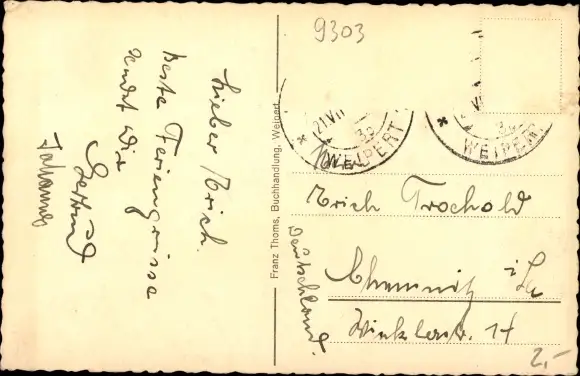 9303
Lieber Erich.
beste Feriengrüsse
sendet Dir
Gertrud
Johannes
Franz Thoms, Buchhandlung, Weipert
21.VII
WEIPERT
WEIPERT
Erich Trochold
Chemnitz i/Sa
Winklerstr. 14
Deutschland.
2,-